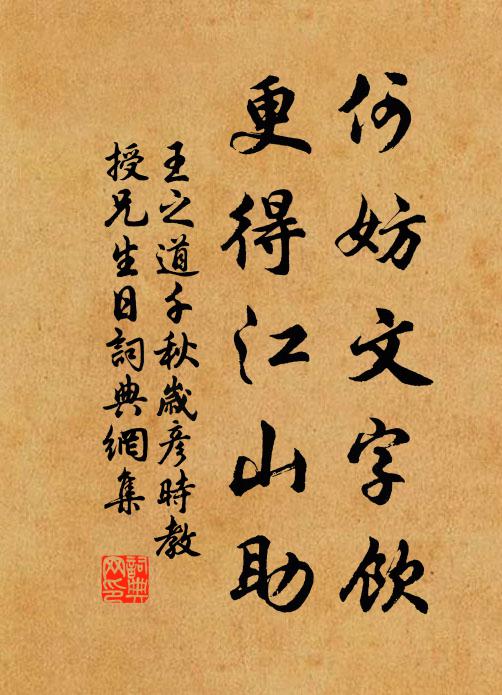 何妨文字飲
更得江山助
王之道千秋歲彥時教
授兄生日詞典網集
詞典
网印